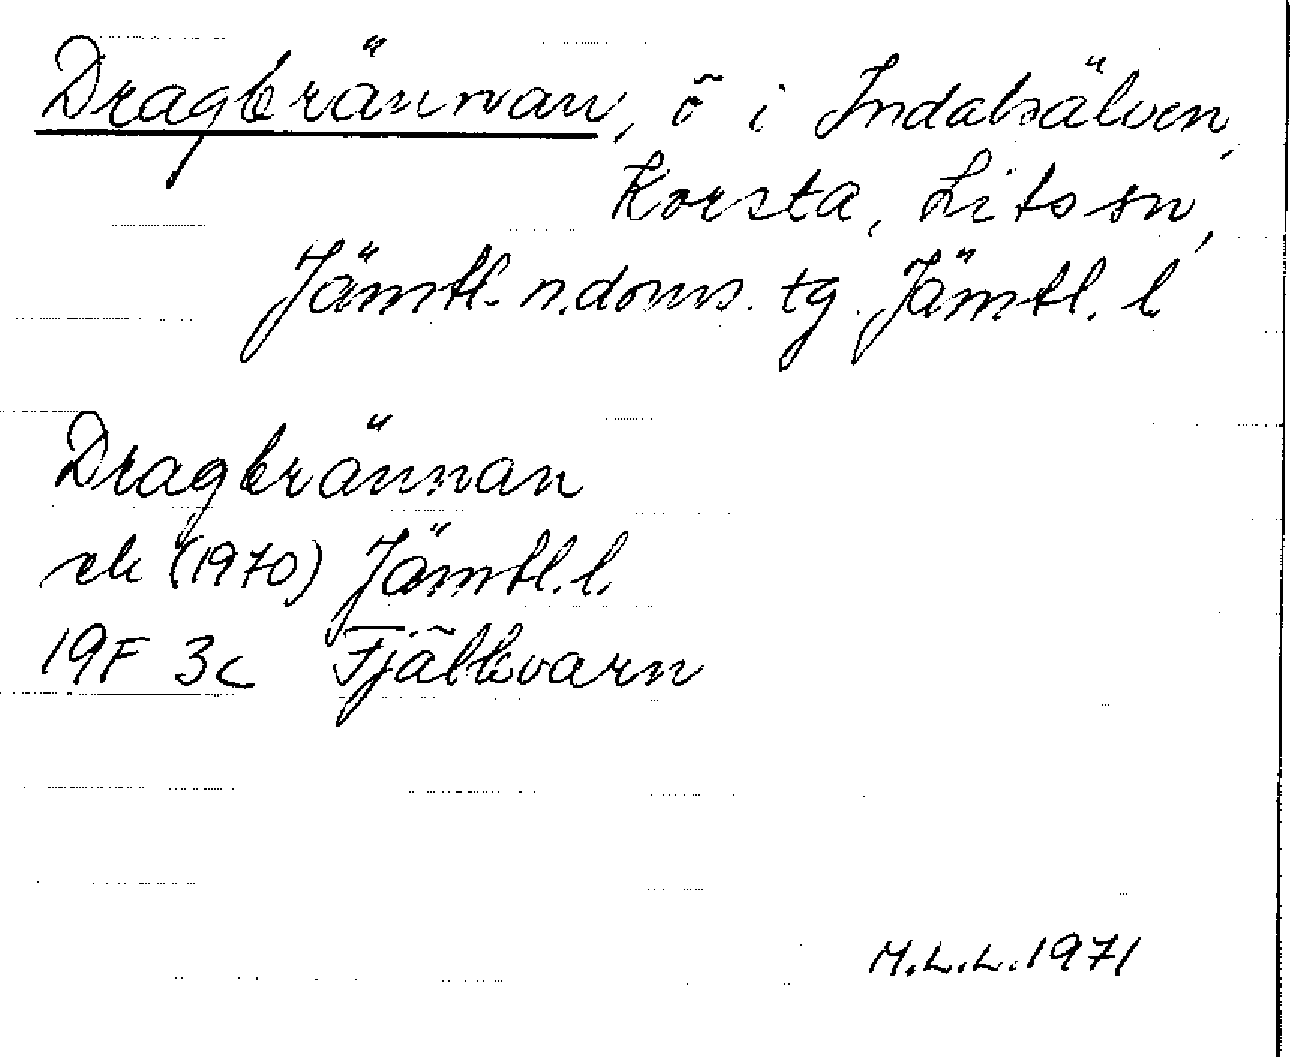 Dragbrännan, ö i Indalsälven,
Korsta, Lits sn,
Jämtl. n. doms. tg. Jämtl. l
Dragbrännan
ek (1970) Jämtl. l.
19F 3c Fjälkvarn
M.L.L. 1971